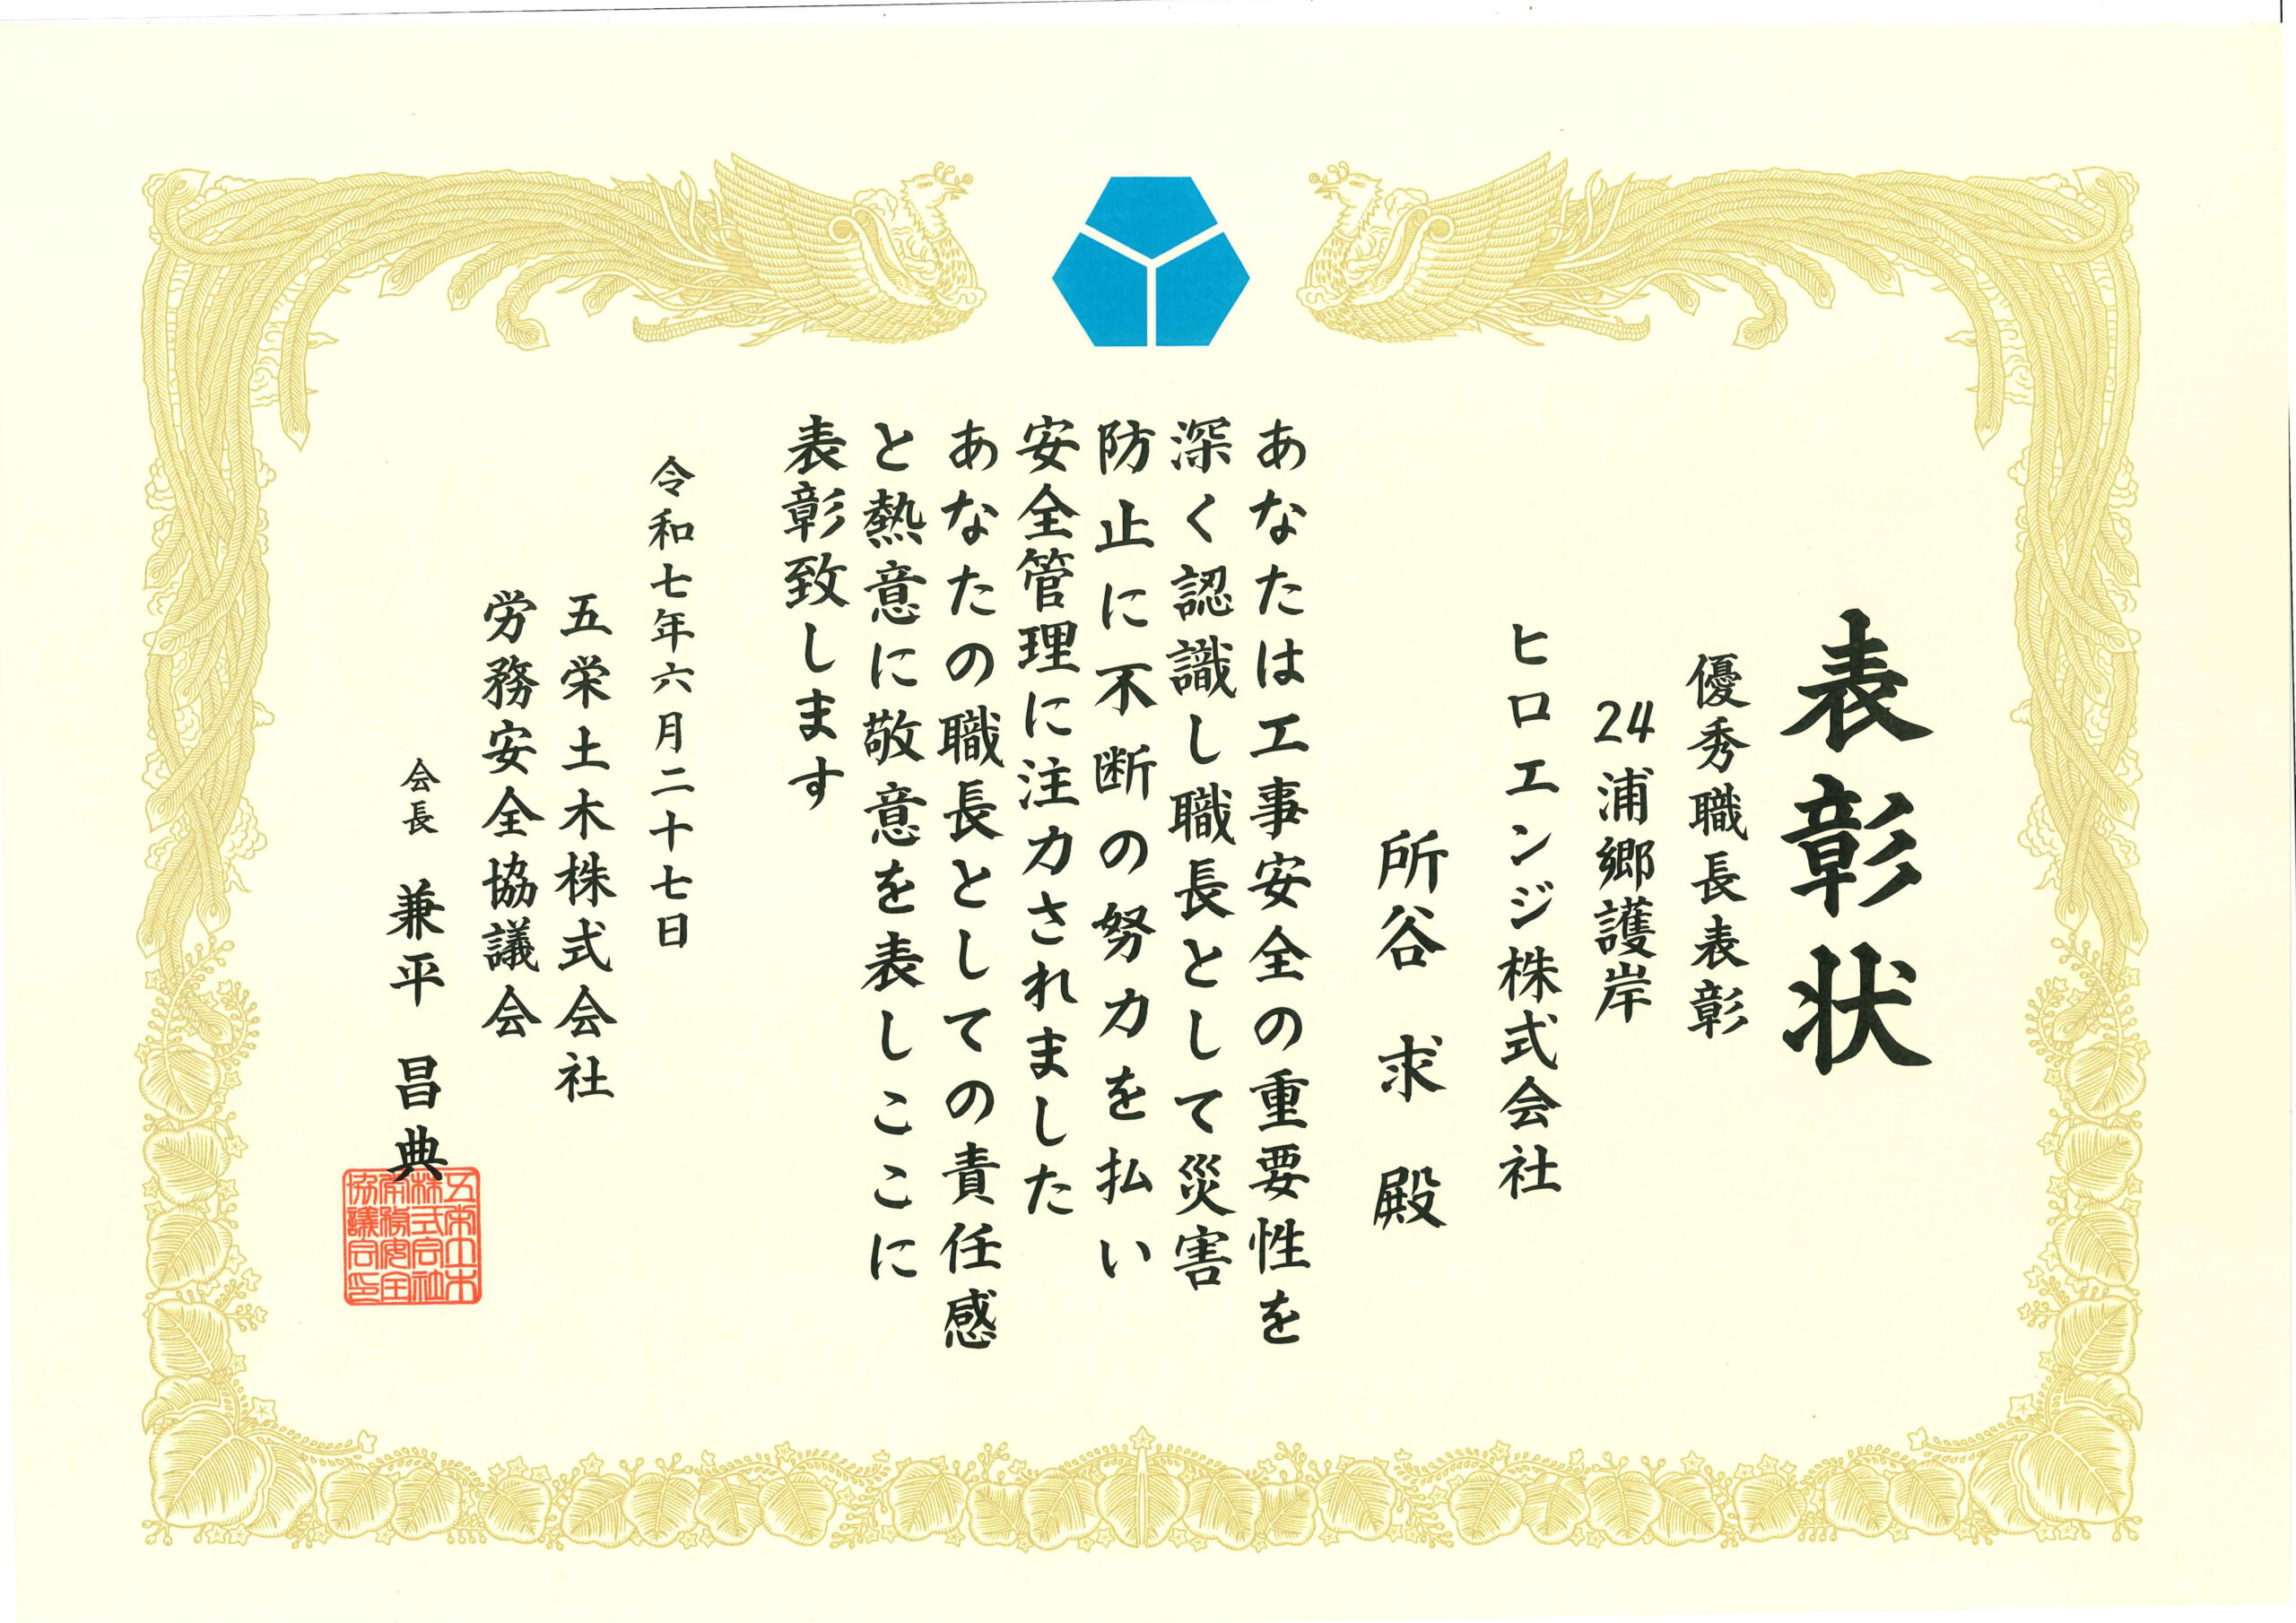 表彰状
優秀職長表彰
24浦郷護岸
ヒロエンジ株式会社
所谷 求 殿
あなたは工事安全の重要性を
深く認識し職長として災害
防止に不断の努力を払い
安全管理に注力されました
あなたの職長としての責任感
と熱意に敬意を表しここに
表彰致します
令和七年六月二十七日
五栄土木株式会社
労務安全協議会
会長 兼平 昌典
五栄土木
株式会社
労務安全
協議会印